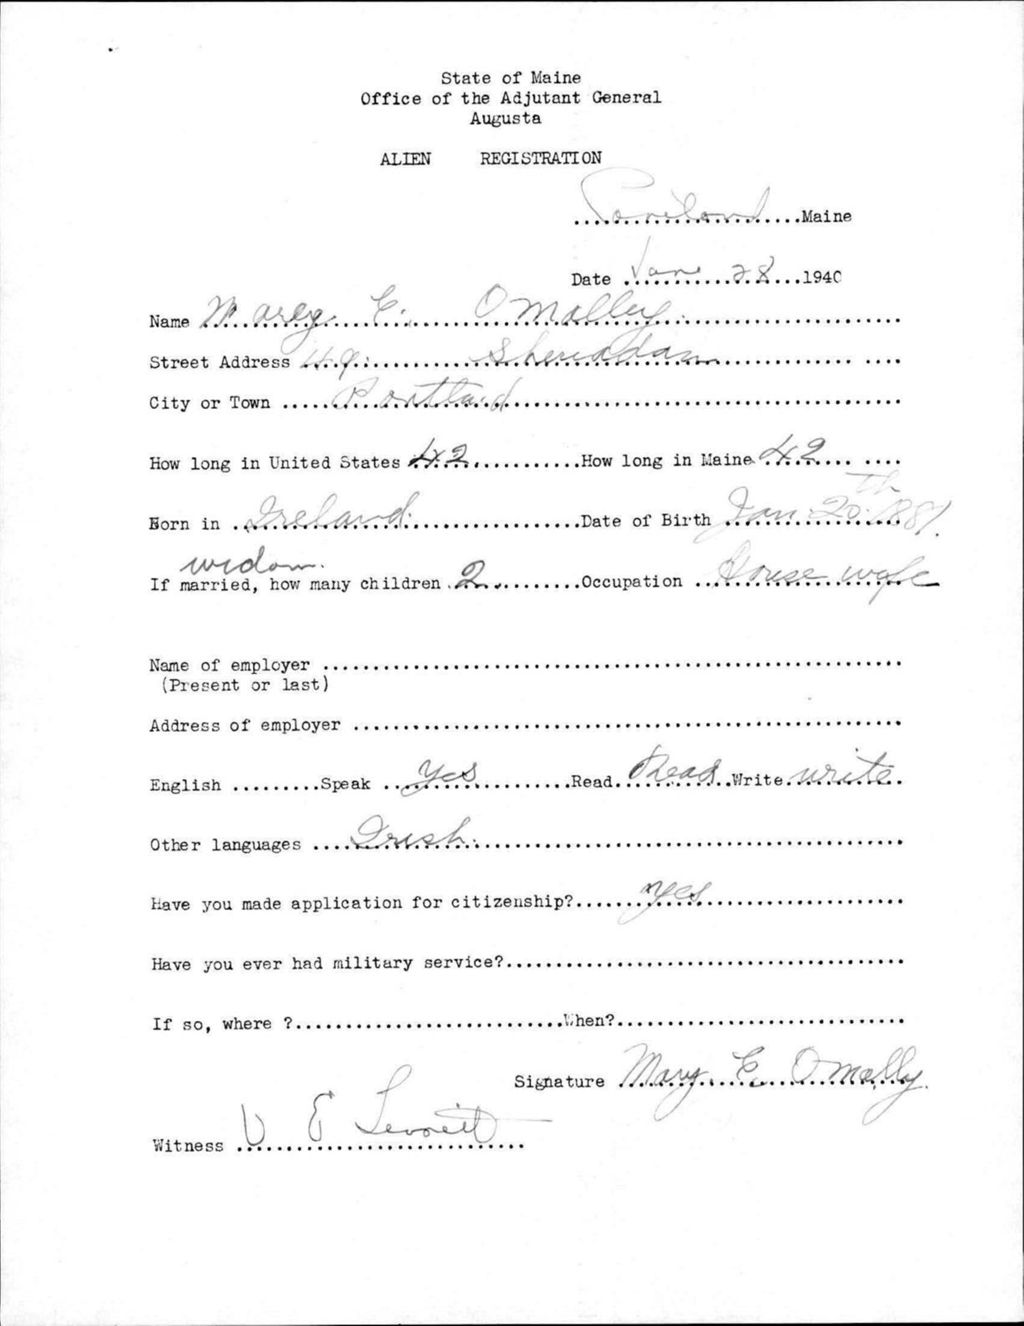 State of Maine
Office of the Adjutant General
Augusta
ALIEN REGISTRATION
Portland Maine
Date June 28 1940
Name Marey E. OMalley
Street Address 49 Sheriadan
City or Town Portland
How long in United States 42 How long in Maine 42
Born in Ireland. Date of Birth Jan 20th 1881.
widow.
If married, how many children 2 Occupation House wife
Name of employer
(Present or last)
Address of employer
English Speak Yes Read Read Write write
Other languages Irish.
Have you made application for citizenship? Yes
Have you ever had military service?
If so, where ? When?
Signature Mary E. OMally.
Witness V E